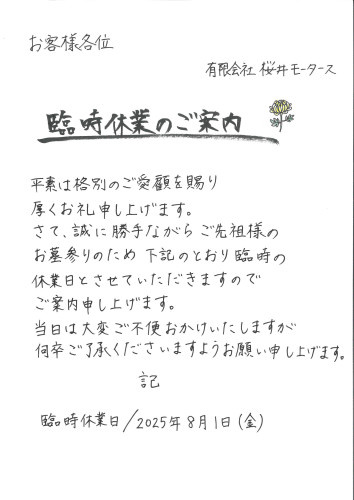 お客様各位
有限会社 桜井モータース
臨時休業のご案内
平素は格別のご愛顧を賜り
厚くお礼申し上げます。
さて、誠に勝手ながら ご先祖様の
お墓参りのため 下記のとおり臨時の
休業日とさせていただきますので
ご案内申し上げます。
当日は大変ご不便おかけいたしますが
何卒ご了承くださいますようお願い申し上げます。
記
臨時休業日/2025年8月1日(金)